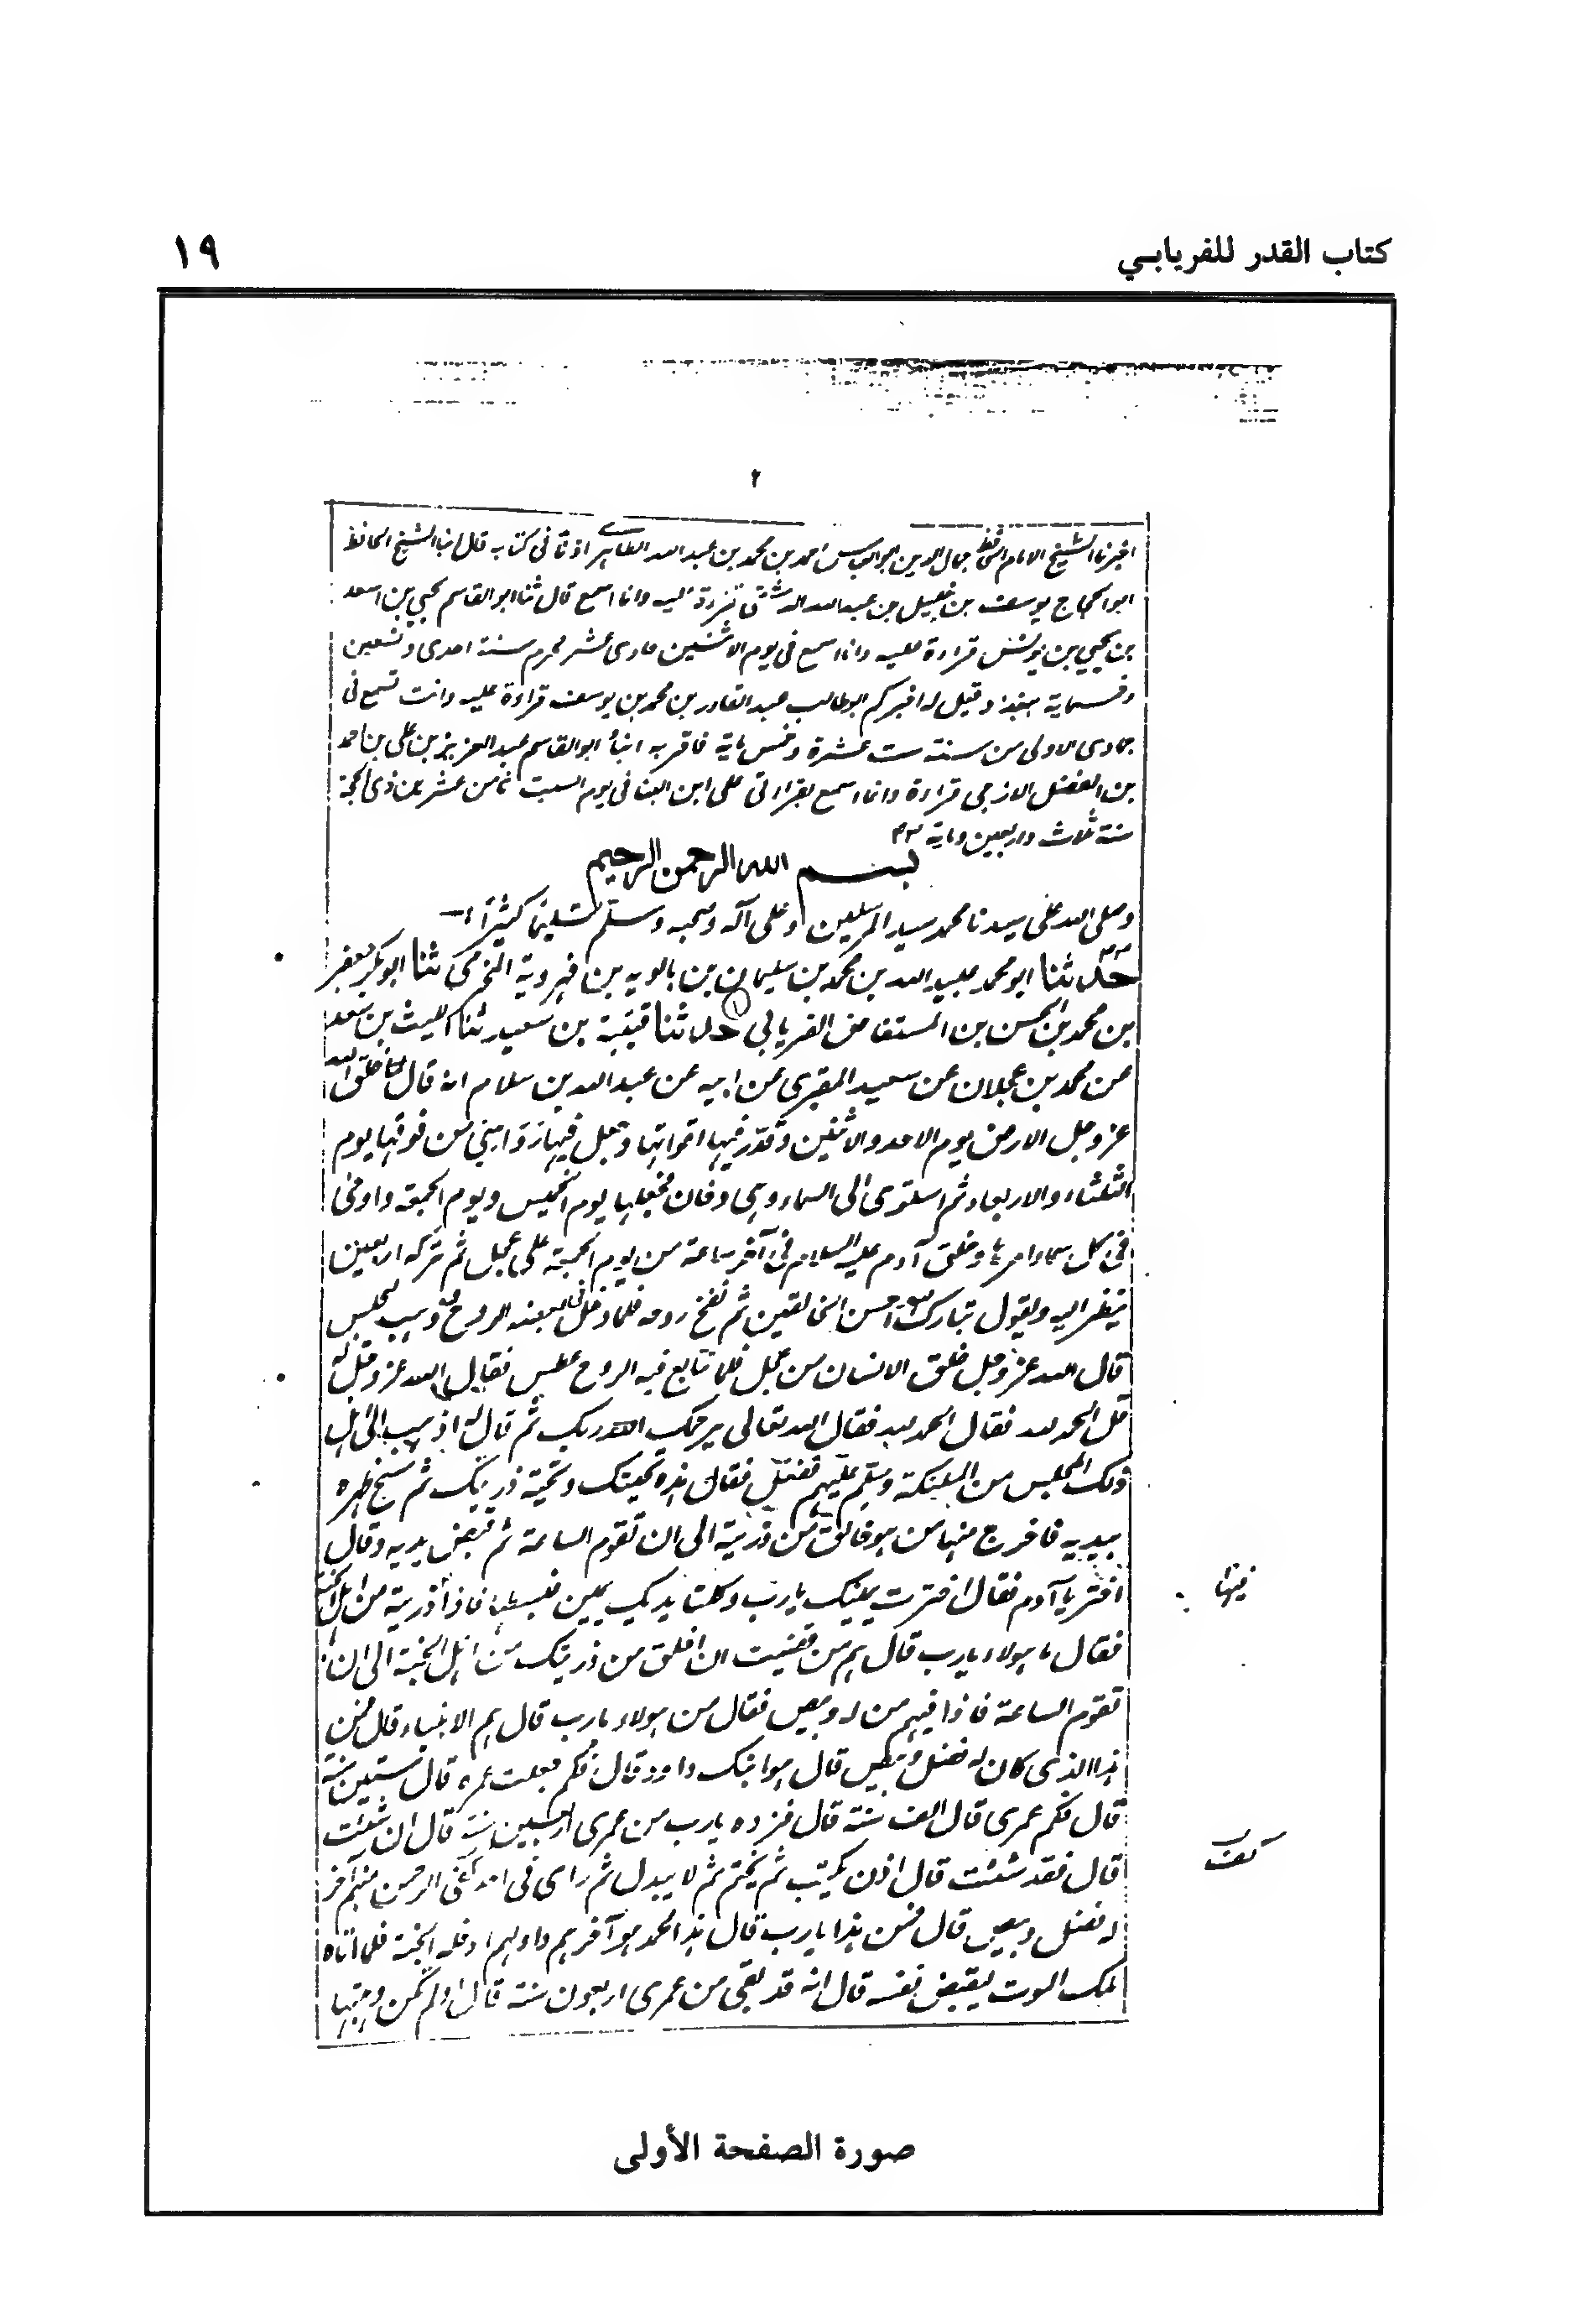 كتاب القدر للفريابي
١٩
٢
اخبرنا الشيخ الامام الحافظ جمال الدين ابو العباس احمد بن محمد بن عبد الله الظاهري اذنا في كتابه قال انبا الشيخ الحافظ
ابو الحجاج يوسف بن خليل بن عبد الله الدمشقي قراءة عليه وانا اسمع قال ثنا ابو القاسم يحيي بن اسعد
بن يحيي بن بوش قراءة عليه وانا اسمع في يوم الاثنين حادى عشر محرم سنة احدى وتسعين
وخمسماية ببغداد قيل له اخبركم ابو طالب عبد القادر بن محمد بن يوسف قراءة عليه وانت تسمع في
جمادى الاولى من سنة ست عشرة وخمس ماية فاقر به انبأ ابو القاسم عبد العزيز بن على بن احمد
بن الفضل الازجى قراءة وانا اسمع بقراءتى على ابن البنا في يوم السبت ثامن عشر من ذى الحجة
سنة ثلاث واربعين وماية
بسم الله الرحمن الرحيم
وصلى الله على سيدنا محمد سيد المرسلين وعلى آله وصحبه وسلم تسليمًا كثيرًا
حدثنا ابو محمد عبيد الله بن محمد بن سليمان بن بالويه بن فهروية المخرمى ثنا ابو بكر جعفر
بن محمد بن الحسن بن المستفاض الفريابي حدثنا قتيبة بن سعيد ثنا الليث بن سعد
عن محمد بن عجلان عن سعيد المقبرى عن ابيه عن عبد الله بن سلام انه قال خلق الله
عز وجل الارض يوم الاحد والاثنين وقدّر فيها اقواتها وجعل فيها رواسي من فوقها يوم
الثلثاء والاربعاء ثم استوى الى السماء وهى دخان فخلقها يوم الخميس ويوم الجمعة واوحى
في كل سماء امرها وخلق آدم عليه السلام في آخر ساعة من يوم الجمعة على عجل ثم تركه اربعين
ينظر اليه ويقول تبارك الله احسن الخالقين ثم نفخ روحه فلما دخل في بعضه الروح ذهب ليجلس
قال الله عز وجل خلق الانسان من عجل فلما تتابع فيه الروح عطس فقال الله عز وجل له
قل الحمد لله فقال الحمد لله فقال الله تعالى يرحمك الله ربك ثم قال له اذهب الى اهل
ذلك المجلس من الملئكة وسلم عليهم ففعل فقال هذه تحيتك وتحية ذريتك ثم مسح ظهره
بيديه فاخرج منها من هو خالق من ذريته الى ان تقوم الساعة ثم قبض يديه وقال
اختر يا آدم فقال اخترت يمينك يا رب وكلتا يديك يمين فبسطها فاذا ذريته من اهل الجنة
فقال ما هولاء يا رب قال هم من قضيت ان اخلق من ذريتك من اهل الجنة الى ان
تقوم الساعة فاذا فيهم من له وبيص فقال من هولاء يا رب قال هم الانبياء قال فمن
هذا الذى كان له فضل وبيص قال هو ابنك داود قال فكم جعلت عمره قال ستين سنة
قال فكم عمرى قال الف سنة قال فزده يا رب من عمرى اربعين سنة قال ان شئت
قال فقد شئت قال اذن يكتب ثم يختم ثم لا يبدل ثم راى في آخر كف الرحمن منهم آخر
له فضل وبيص قال فمن هذا يا رب قال هذا محمد هو آخرهم واولهم ادخله الجنة فلما اتاه
ملك الموت ليقبض نفسه قال انه قد بقى من عمرى اربعون سنة قال اولم تكن وهبتها
فيها
كف
صورة الصفحة الأولى